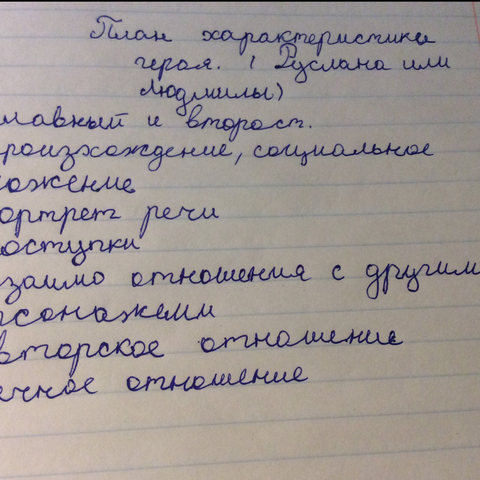 План характеристики
героя. (Руслана или
Людмилы)
лавный и второст.
роизхождение, социальное
ожение
ортрет речи
оступки
заимо отношения с другим
рсонажеми
вторское отношение
ечное отношение